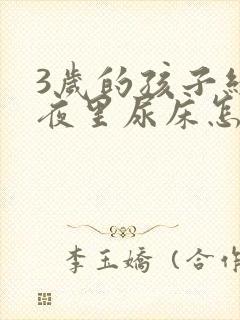 3歲的孩子
夜里尿床怎
李玉嬌（合作